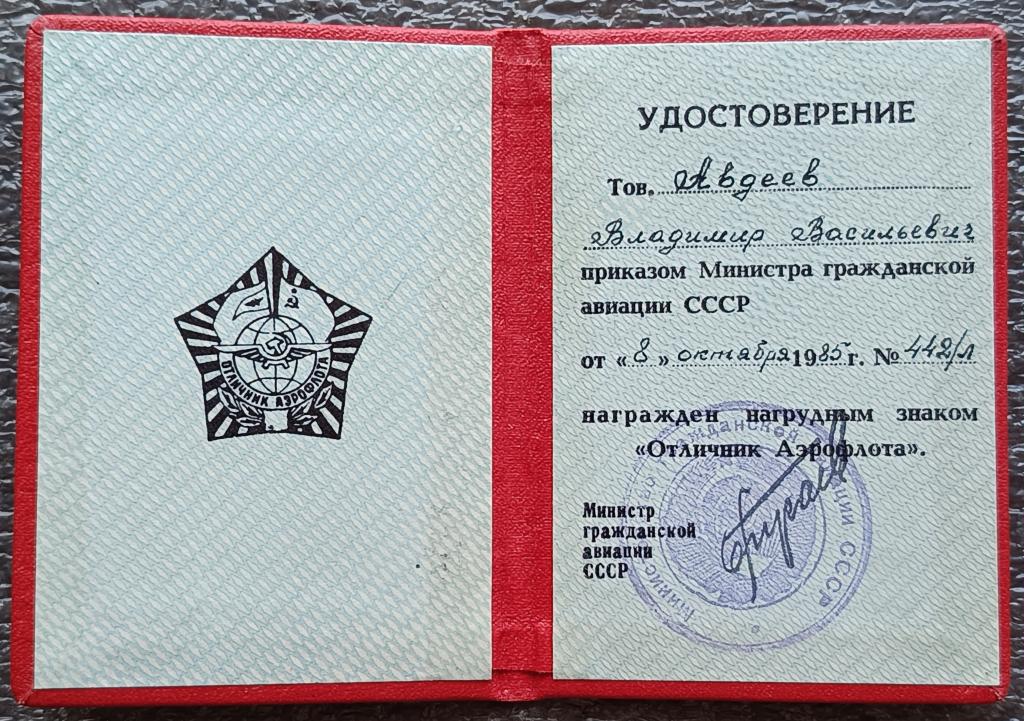 ОТЛИЧНИК АЭРОФЛОТА
УДОСТОВЕРЕНИЕ
Тов. Авдеев
Владимир Васильевич
приказом Министра гражданской
авиации СССР
от «8» октября 1985 г. № 442/л
награжден нагрудным знаком
«Отличник Аэрофлота».
Министр
гражданской
авиации
СССР
Бугаев
Министерство гражданской авиации СССР